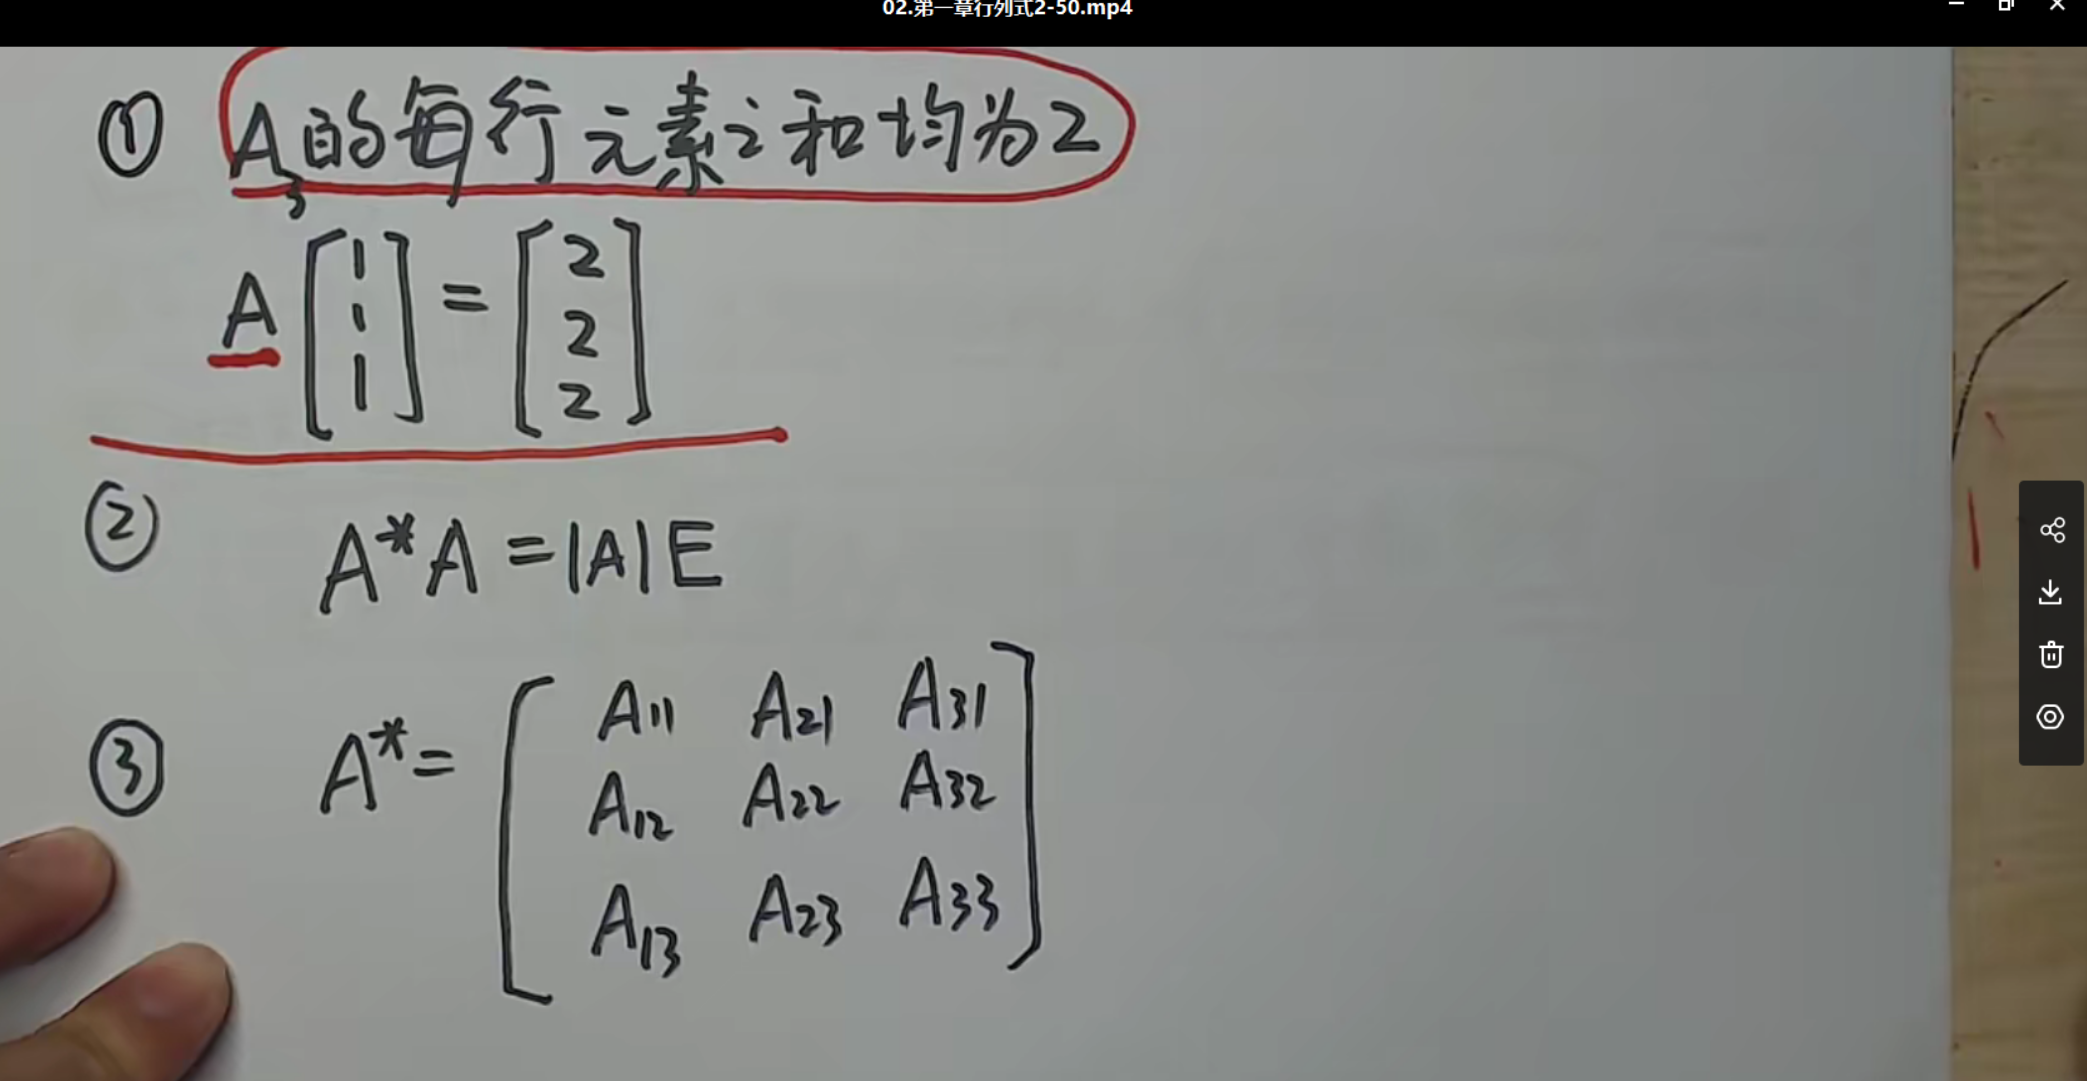 02.第一章行列式2-50.mp4
① A₃的每行元素之和均为2
A[1 1 1] = [2 2 2]
② A*A = |A|E
③ A* = [A₁₁ A₂₁ A₃₁
A₁₂ A₂₂ A₃₂
A₁₃ A₂₃ A₃₃]